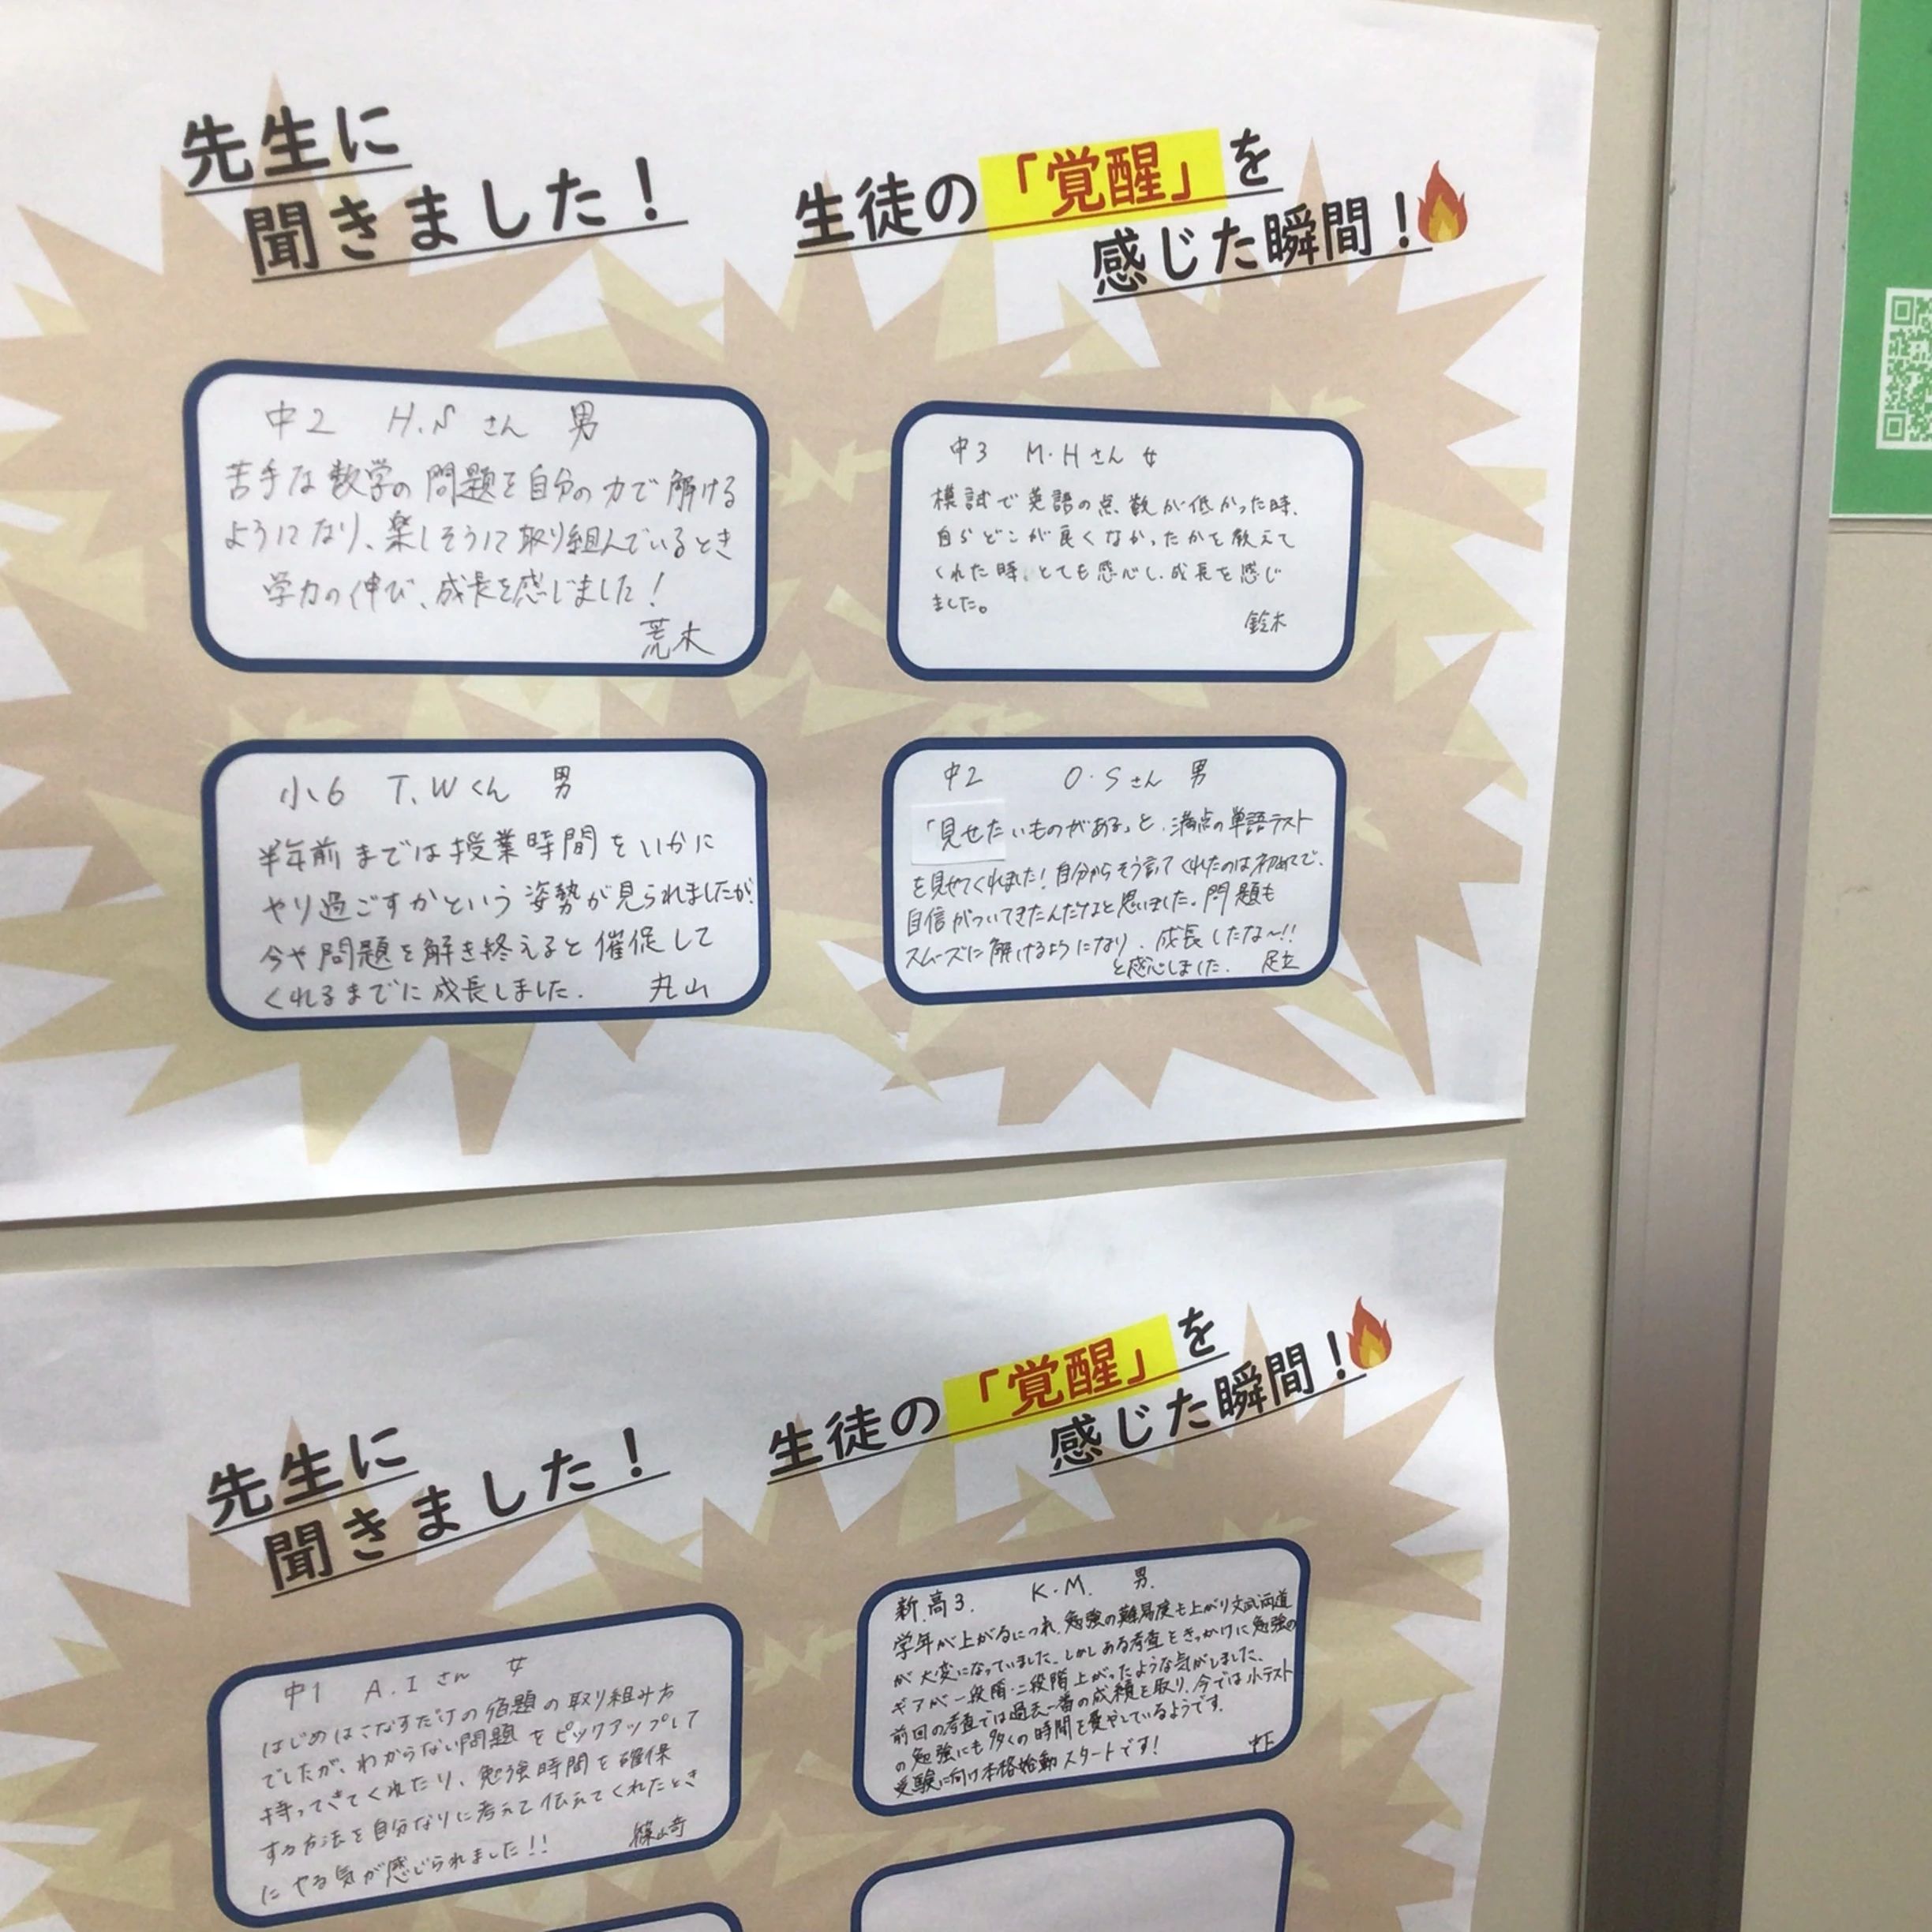 先生に
聞きました！
生徒の「覚醒」を
感じた瞬間！
中2 H.Nさん 男
苦手な数学の問題を自分の力で解ける
ようになり、楽しそうに取り組んでいるとき
学力の伸び、成長を感じました！
荒木
中3 M.Hさん 女
模試で英語の点数が低かった時、
自らどこが良くなかったかを教えて
くれた時、とても感心し、成長を感じ
ました。
鈴木
小6 T.Wくん 男
半年前までは授業時間をいかに
やり過ごすかという姿勢が見られましたが、
今や問題を解き終えると催促して
くれるまでに成長しました. 丸山
中2 O.Sさん 男
「見せたいものがある」と、満点の単語テスト
を見せてくれました！自分からそう言ってくれたのは初めてで、
自信がついてきたんだなと思いました。問題も
スムーズに解けるようになり、成長したな〜!!
と感心しました. 足立
先生に
聞きました！
生徒の「覚醒」を
感じた瞬間！
中1 A.Iさん 女
はじめはこなすだけの宿題の取り組み方
でしたが、わからない問題をピックアップして
持ってきてくれたり、勉強時間を確保
する方法を自分なりに考えて伝えてくれたとき
にやる気が感じられました!! 篠崎
新高3. K.M. 男.
学年が上がるにつれ、勉強の難易度も上がり文武両道
が大変になっていました。しかしある考査をきっかけに勉強の
ギアが一段階・二段階上がったような気がしました。
前回の考査では過去一番の成績を取り、今では小テスト
の勉強にも多くの時間を費やしているようです。
受験に向け本格始動スタートです！